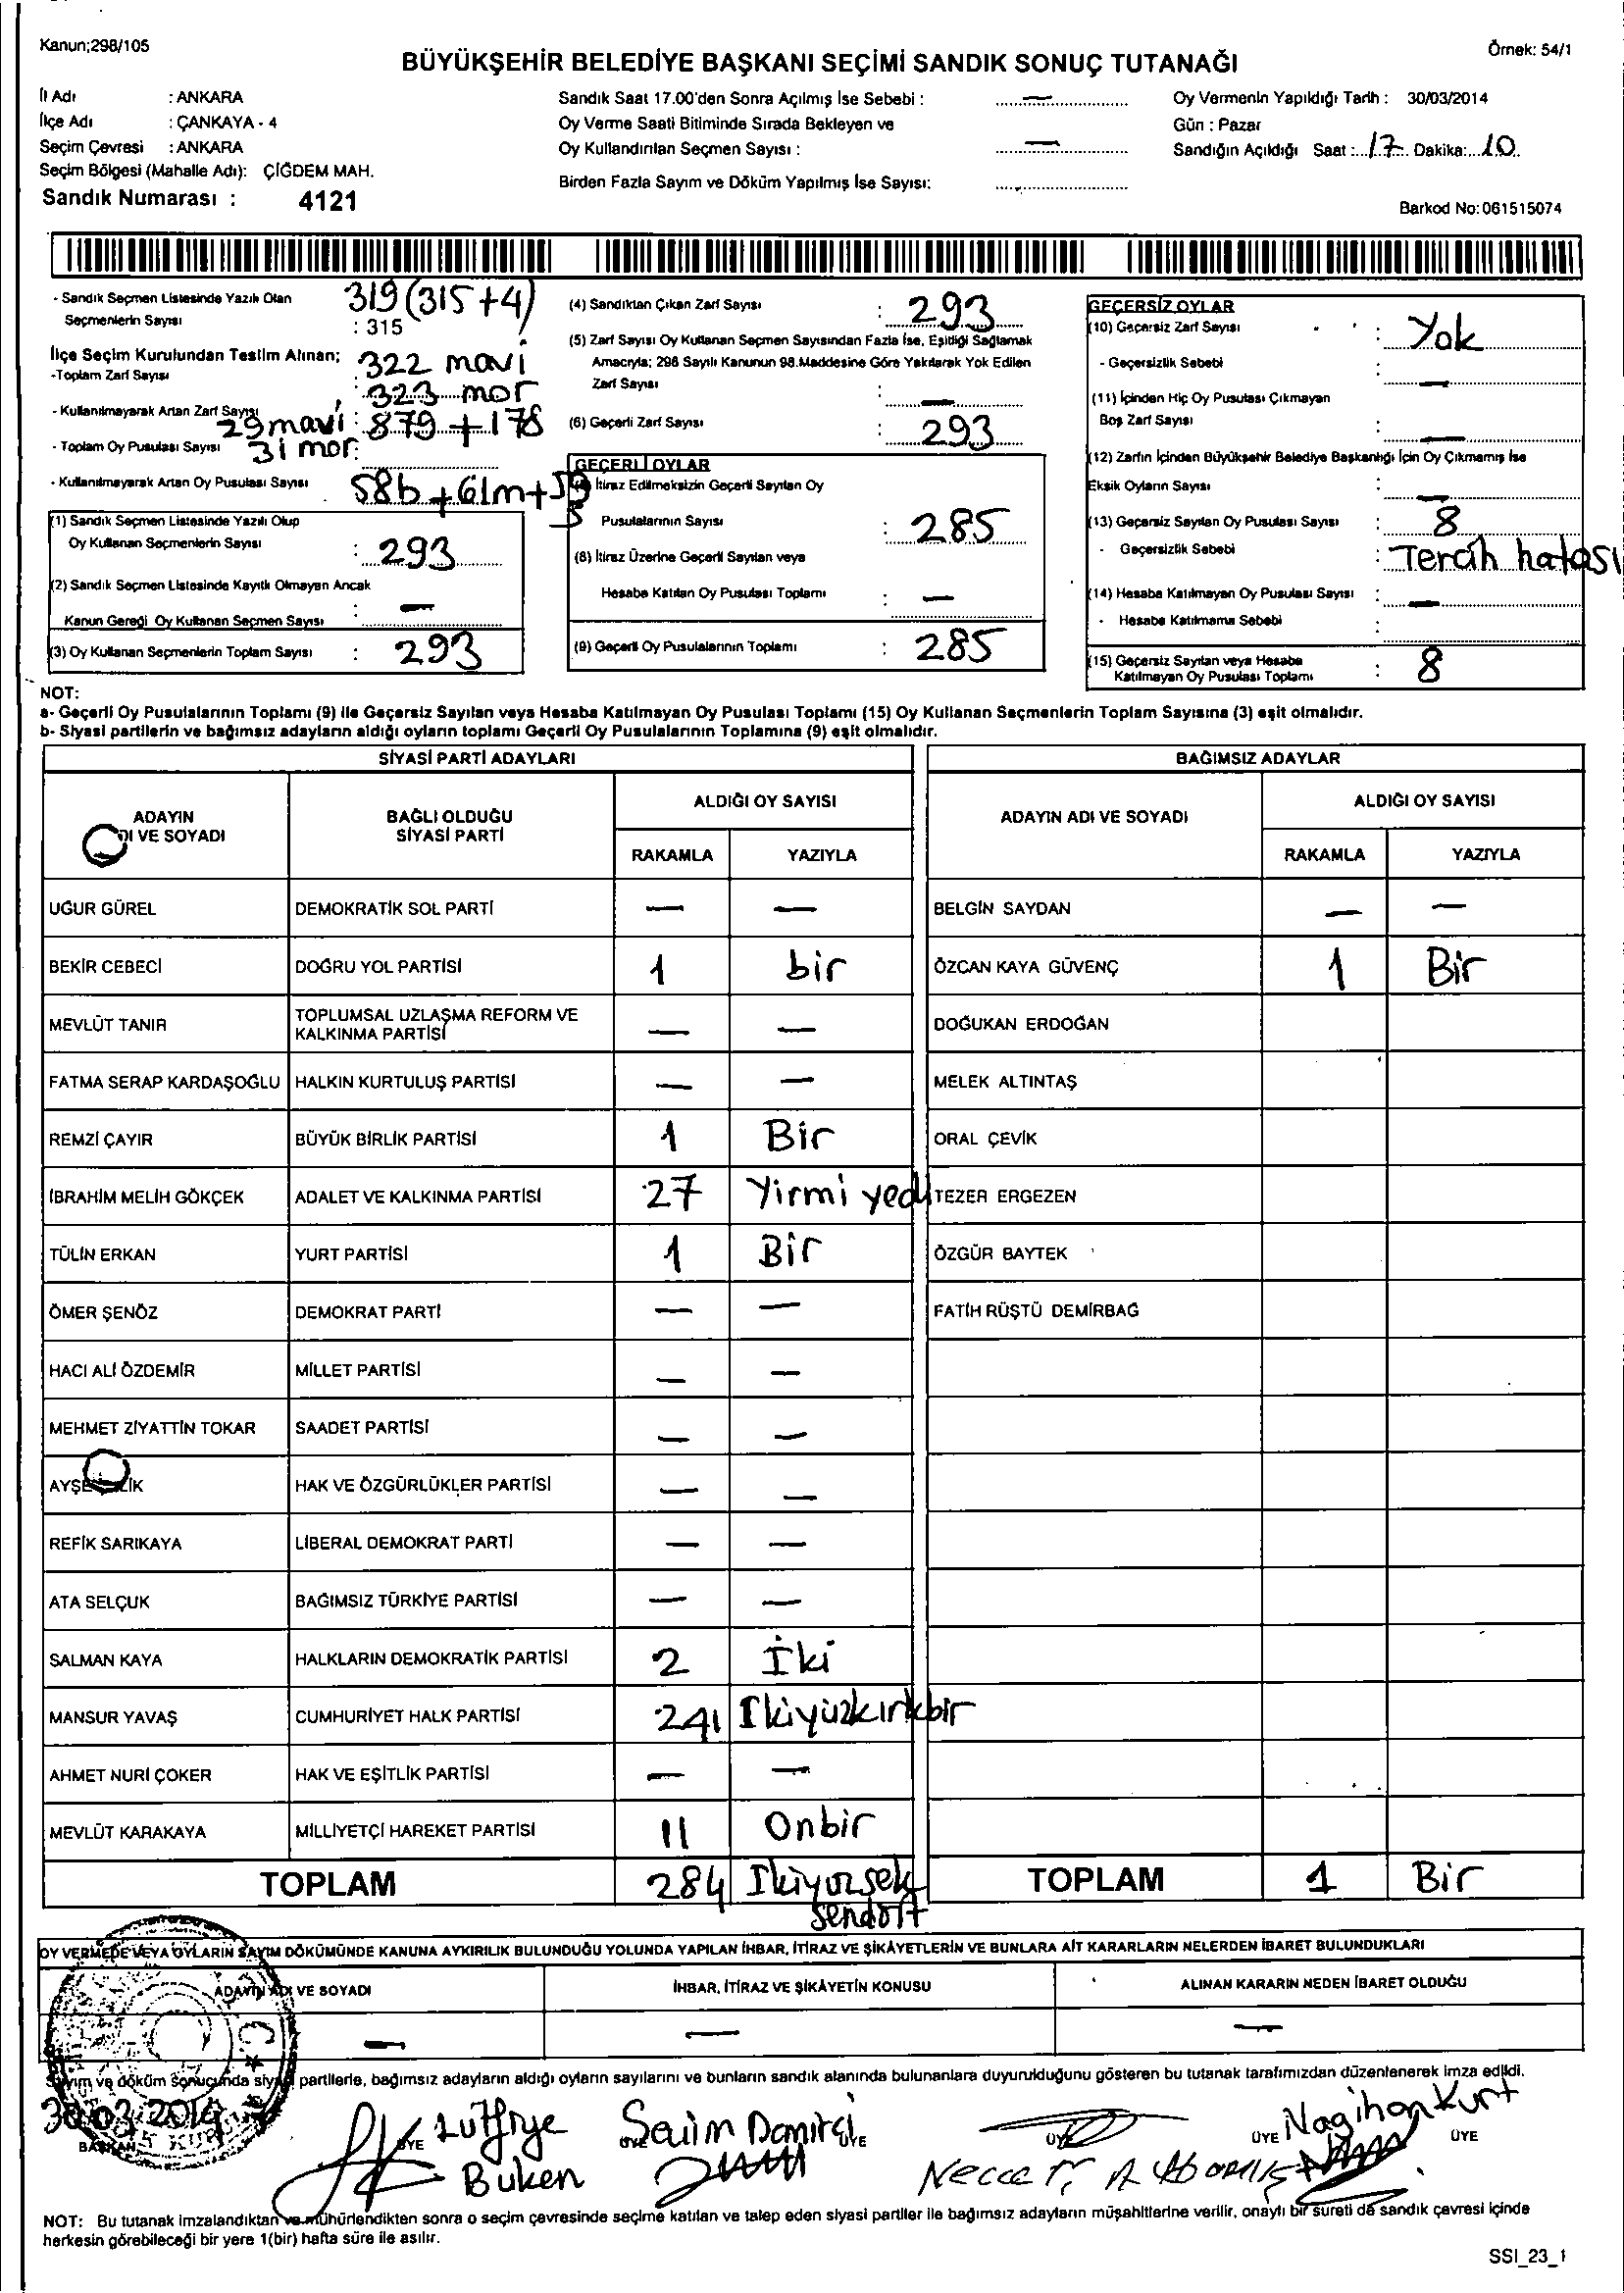 Kanun;298/105
Örnek: 54/1
BÜYÜKŞEHİR BELEDİYE BAŞKANI SEÇİMİ SANDIK SONUÇ TUTANAĞI
İl Adı : ANKARA
İlçe Adı : ÇANKAYA - 4
Seçim Çevresi : ANKARA
Seçim Bölgesi (Mahalle Adı): ÇİĞDEM MAH.
Sandık Numarası : 4121
Sandık Saat 17.00'den Sonra Açılmış İse Sebebi : —
Oy Verme Saati Bitiminde Sırada Bekleyen ve
Oy Kullandırılan Seçmen Sayısı : —
Birden Fazla Sayım ve Döküm Yapılmış İse Sayısı:
Oy Vermenin Yapıldığı Tarih : 30/03/2014
Gün : Pazar
Sandığın Açıldığı Saat : 17 Dakika: 10
Barkod No:061515074
- Sandık Seçmen Listesinde Yazılı Olan 319 (315+4)
Seçmenlerin Sayısı : 315
İlçe Seçim Kurulundan Teslim Alınan; 322 mavi
-Toplam Zarf Sayısı : 323 mor
- Kullanılmayarak Artan Zarf Sayısı 29 mavi : 879 + 178
- Toplam Oy Pusulası Sayısı 31 mor :
- Kullanılmayarak Artan Oy Pusulası Sayısı 58b + 61m +
(1) Sandık Seçmen Listesinde Yazılı Olup
Oy Kullanan Seçmenlerin Sayısı : 293
(2) Sandık Seçmen Listesinde Kayıtlı Olmayan Ancak
Kanun Gereği Oy Kullanan Seçmen Sayısı : —
(3) Oy Kullanan Seçmenlerin Toplam Sayısı : 293
(4) Sandıktan Çıkan Zarf Sayısı : 293
(5) Zarf Sayısı Oy Kullanan Seçmen Sayısından Fazla İse, Eşitliği Sağlamak
Amacıyla; 298 Sayılı Kanunun 98.Maddesine Göre Yakılarak Yok Edilen
Zarf Sayısı : —
(6) Geçerli Zarf Sayısı : 293
GEÇERLİ OYLAR
İtiraz Edilmeksizin Geçerli Sayılan Oy
Pusulalarının Sayısı : 285
(8) İtiraz Üzerine Geçerli Sayılan veya
Hesaba Katılan Oy Pusulası Toplamı : —
(9) Geçerli Oy Pusulalarının Toplamı : 285
GEÇERSİZ OYLAR
(10) Geçersiz Zarf Sayısı : Yok
- Geçersizlik Sebebi : —
(11) İçinden Hiç Oy Pusulası Çıkmayan
Boş Zarf Sayısı : —
(12) Zarfın İçinden Büyükşehir Belediye Başkanlığı İçin Oy Çıkmamış İse
Eksik Oyların Sayısı : —
(13) Geçersiz Sayılan Oy Pusulası Sayısı : 8
- Geçersizlik Sebebi : Tercih hatası
(14) Hesaba Katılmayan Oy Pusulası Sayısı : —
- Hesaba Katılmama Sebebi :
(15) Geçersiz Sayılan veya Hesaba
Katılmayan Oy Pusulası Toplamı : 8
NOT:
a- Geçerli Oy Pusulalarının Toplamı (9) ile Geçersiz Sayılan veya Hesaba Katılmayan Oy Pusulası Toplamı (15) Oy Kullanan Seçmenlerin Toplam Sayısına (3) eşit olmalıdır.
b- Siyasi partilerin ve bağımsız adayların aldığı oyların toplamı Geçerli Oy Pusulalarının Toplamına (9) eşit olmalıdır.
SİYASİ PARTİ ADAYLARI
ADAYIN
DI VE SOYADI
BAĞLI OLDUĞU
SİYASİ PARTİ
ALDIĞI OY SAYISI
RAKAMLA YAZIYLA
UĞUR GÜREL DEMOKRATİK SOL PARTİ — —
BEKİR CEBECİ DOĞRU YOL PARTİSİ 1 bir
MEVLÜT TANIR TOPLUMSAL UZLAŞMA REFORM VE
KALKINMA PARTİSİ — —
FATMA SERAP KARDAŞOĞLU HALKIN KURTULUŞ PARTİSİ — —
REMZİ ÇAYIR BÜYÜK BİRLİK PARTİSİ 1 Bir
İBRAHİM MELİH GÖKÇEK ADALET VE KALKINMA PARTİSİ 27 Yirmi yedi
TÜLİN ERKAN YURT PARTİSİ 1 Bir
ÖMER ŞENÖZ DEMOKRAT PARTİ — —
HACI ALİ ÖZDEMİR MİLLET PARTİSİ — —
MEHMET ZİYATTİN TOKAR SAADET PARTİSİ — —
HAK VE ÖZGÜRLÜKLER PARTİSİ — —
REFİK SARIKAYA LİBERAL DEMOKRAT PARTİ — —
ATA SELÇUK BAĞIMSIZ TÜRKİYE PARTİSİ — —
SALMAN KAYA HALKLARIN DEMOKRATİK PARTİSİ 2 İki
MANSUR YAVAŞ CUMHURİYET HALK PARTİSİ 241 Ikiyüzkırkbir
AHMET NURİ ÇOKER HAK VE EŞİTLİK PARTİSİ — —
MEVLÜT KARAKAYA MİLLİYETÇİ HAREKET PARTİSİ 11 Onbir
TOPLAM 284
BAĞIMSIZ ADAYLAR
ADAYIN ADI VE SOYADI
ALDIĞI OY SAYISI
RAKAMLA YAZIYLA
BELGİN SAYDAN — —
ÖZCAN KAYA GÜVENÇ 1 Bir
DOĞUKAN ERDOĞAN
MELEK ALTINTAŞ
ORAL ÇEVİK
TEZER ERGEZEN
ÖZGÜR BAYTEK
FATİH RÜŞTÜ DEMİRBAĞ
TOPLAM 1 Bir
OY VERMEDE VEYA OYLARIN SAYIM DÖKÜMÜNDE KANUNA AYKIRILIK BULUNDUĞU YOLUNDA YAPILAN İHBAR, İTİRAZ VE ŞİKÂYETLERİN VE BUNLARA AİT KARARLARIN NELERDEN İBARET BULUNDUKLARI
ADAYIN ADI VE SOYADI İHBAR, İTİRAZ VE ŞİKÂYETİN KONUSU ALINAN KARARIN NEDEN İBARET OLDUĞU
— — —
Sayım ve döküm sonucunda siyasi partilerle, bağımsız adayların aldığı oyların sayılarını ve bunların sandık alanında bulunanlara duyurulduğunu gösteren bu tutanak tarafımızdan düzenlenerek imza edildi.
30.03.2014
BAŞKAN ÜYE ÜYE ÜYE ÜYE ÜYE ÜYE
Lütfiye
Büken
Saim Damirci
Nagihan Kurt
NOT: Bu tutanak imzalandıktan ve mühürlendikten sonra o seçim çevresinde seçime katılan ve talep eden siyasi partiler ile bağımsız adayların müşahitlerine verilir, onaylı bir sureti de sandık çevresi içinde
herkesin görebileceği bir yere 1(bir) hafta süre ile asılır.
SSI_23_1